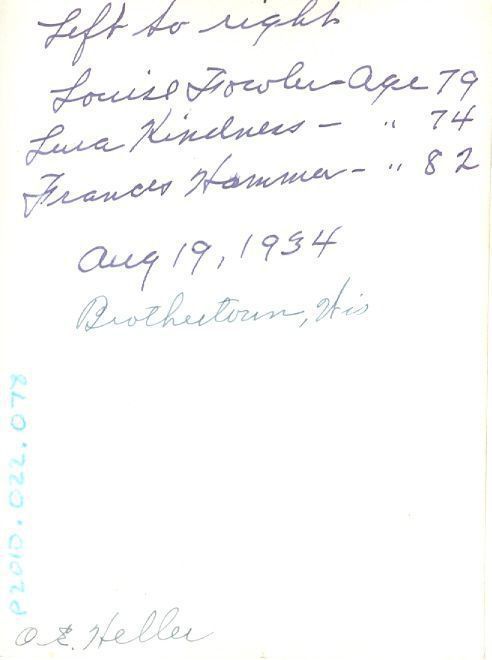 Left to right
Louise Fowler - Age 79
Lura Kindness - " 74
Frances Hammer - " 82
Aug 19, 1934
Brothertown, Wis
P2010.022.078
O.E. Heller